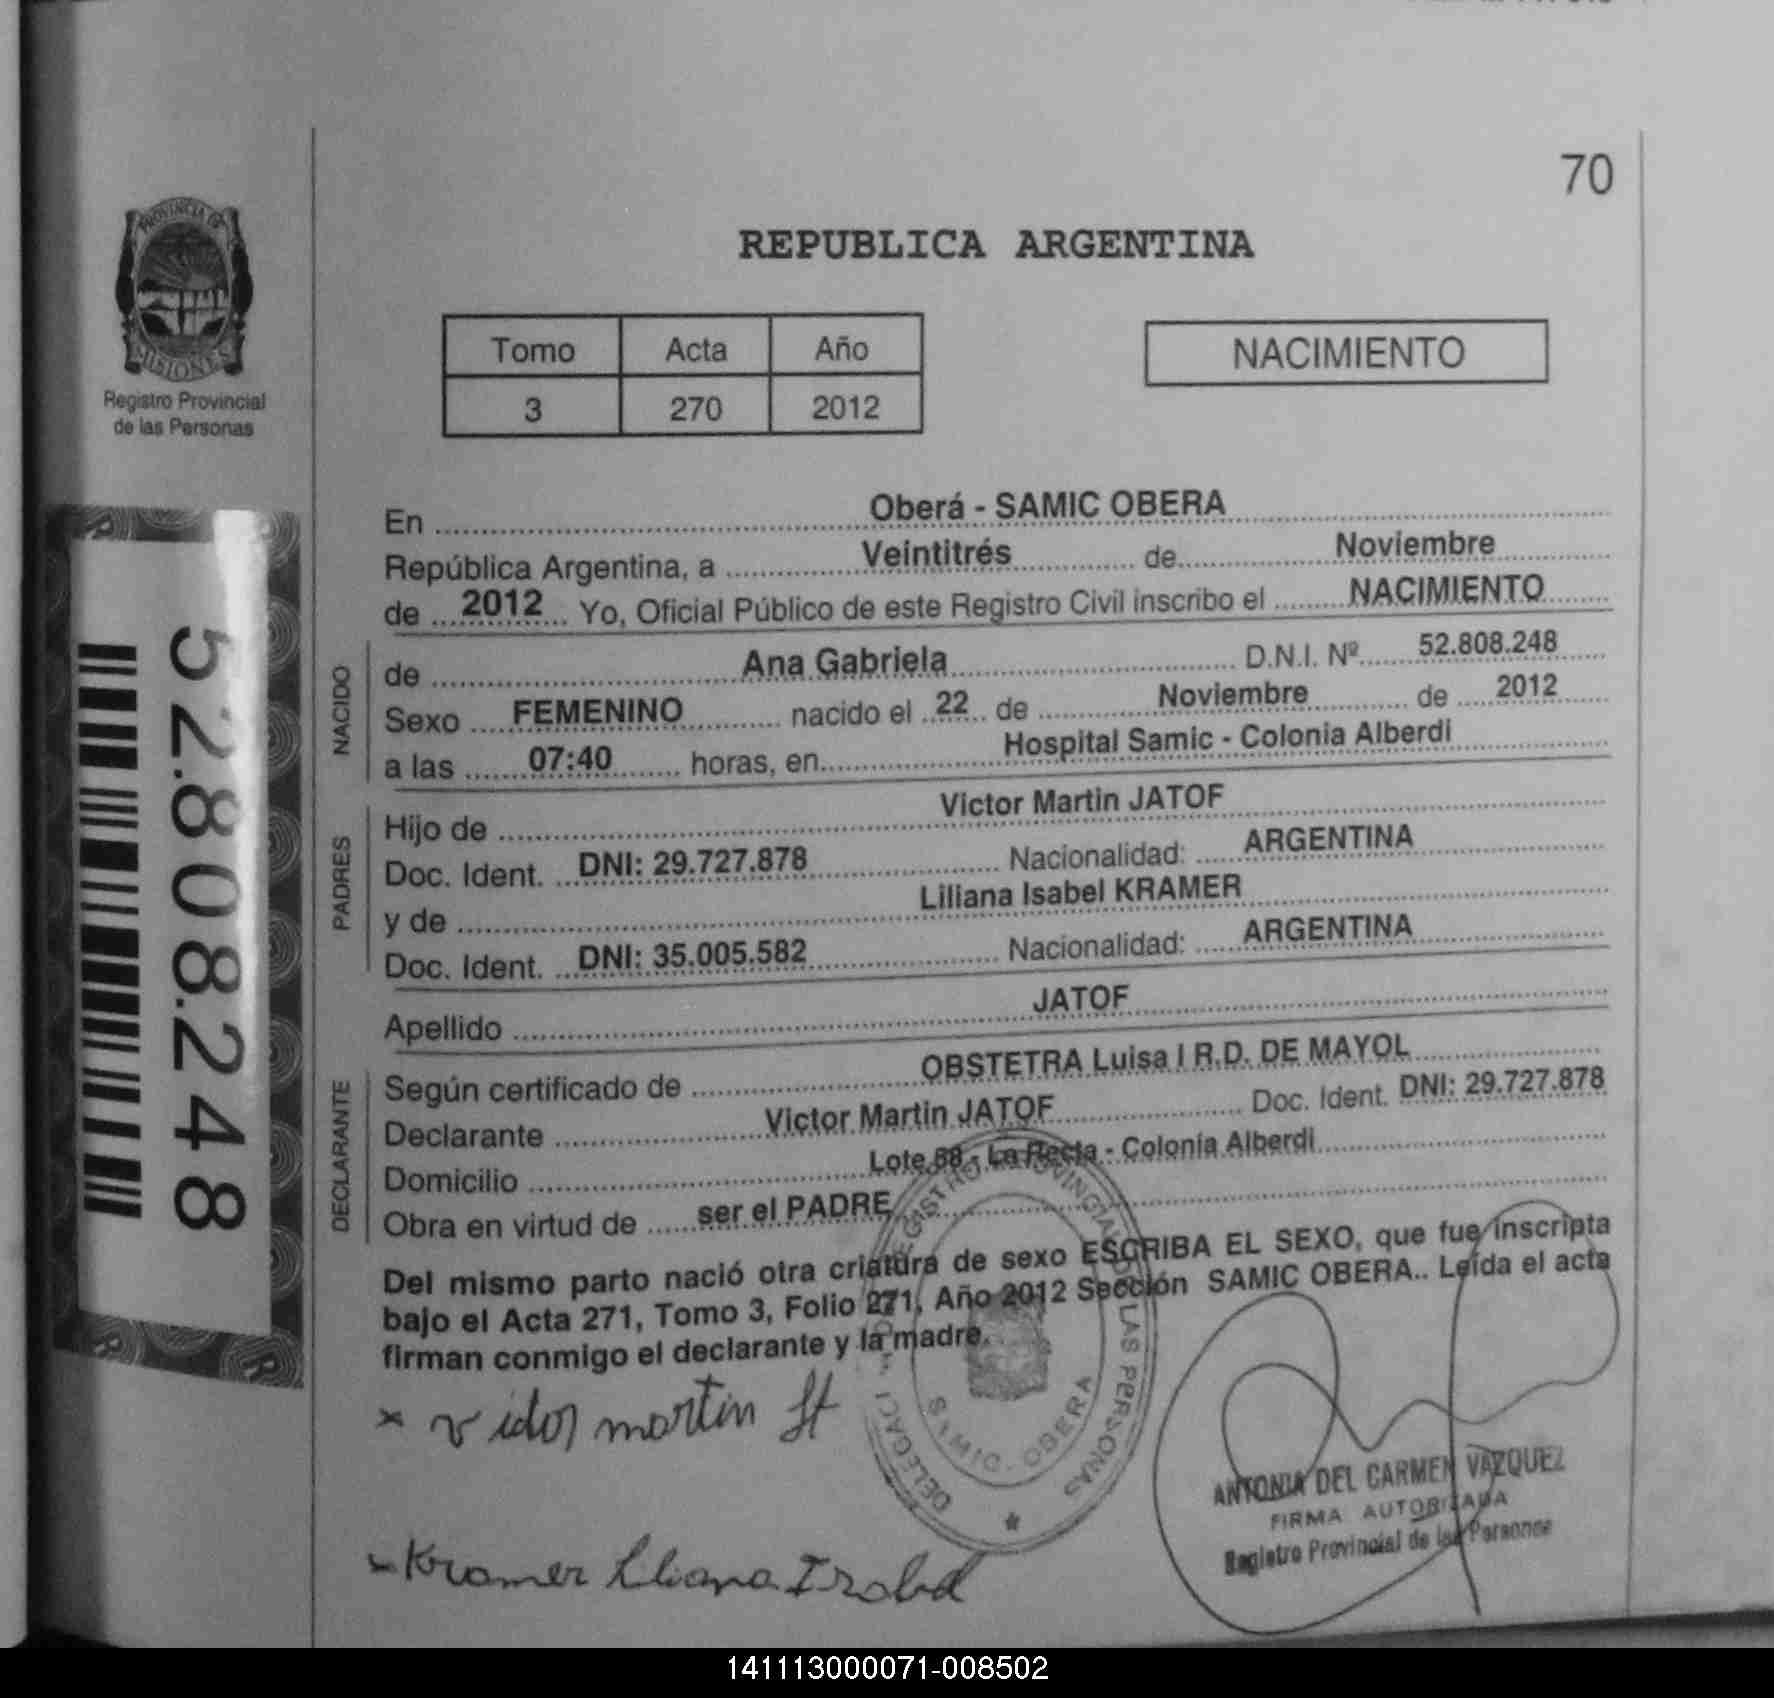 70
PROVINCIA DE
MISIONES
Registro Provincial
de las Personas
REPUBLICA ARGENTINA
Tomo Acta Año
3 270 2012
NACIMIENTO
52.808.248
En Oberá - SAMIC OBERA
República Argentina, a Veintitrés de Noviembre
de 2012 Yo, Oficial Público de este Registro Civil inscribo el NACIMIENTO
NACIDO
de Ana Gabriela D.N.I. Nº 52.808.248
Sexo FEMENINO nacido el 22 de Noviembre de 2012
a las 07:40 horas, en Hospital Samic - Colonia Alberdi
PADRES
Hijo de Victor Martin JATOF
Doc. Ident. DNI: 29.727.878 Nacionalidad: ARGENTINA
y de Liliana Isabel KRAMER
Doc. Ident. DNI: 35.005.582 Nacionalidad: ARGENTINA
Apellido JATOF
DECLARANTE
Según certificado de OBSTETRA Luisa I R.D. DE MAYOL
Declarante Victor Martin JATOF Doc. Ident. DNI: 29.727.878
Domicilio Lote 68 - La Recta - Colonia Alberdi
Obra en virtud de ser el PADRE
Del mismo parto nació otra criatura de sexo ESCRIBA EL SEXO, que fue inscripta
bajo el Acta 271, Tomo 3, Folio 271, Año 2012 Sección SAMIC OBERA.. Leída el acta
firman conmigo el declarante y la madre.
martin
Kramer Liliana Isabel
REGISTRO PROVINCIAL DE LAS PERSONAS
SAMIC - OBERA
ANTONIA DEL CARMEN VAZQUEZ
FIRMA AUTORIZADA
Registro Provincial de las Personas
141113000071-008502